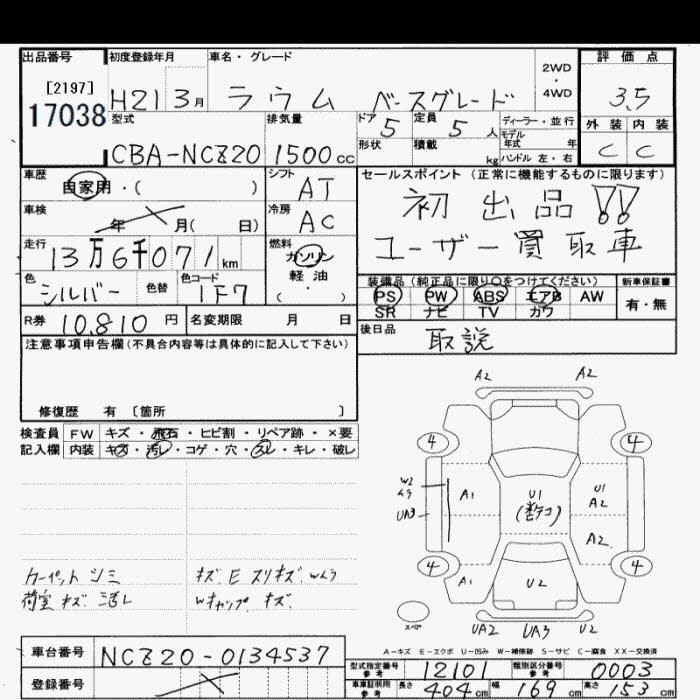 出品番号 初度登録年月 車名・グレード 2WD ・ 4WD 評価点
[2197]
17038 H21 3月 ラウム ベースグレード 3.5
型式 排気量 ドア 5 定員 5人 ディーラー・並行 外装 内装
モデル年式 年
CBA-NCZ20 1500cc 形状 積載 kg ハンドル 左・右 C C
車歴 シフト セールスポイント (正常に機能するものに限ります)
自家用・( ) AT 初出品!!
車検 冷房
年 月( 日) AC ユーザー買取車
走行 燃料
13万6千071km ガソリン
軽油
( ・ )
色 色替 色コード 装備品 (純正品に限り○をつけてください) 新車保証書
シルバー 1F7 PS PW ABS エアB AW 有・無
SR ナビ TV カワ
R券 10,810円 名変期限 月 日 後日品 取説
注意事項申告欄(不具合内容等は具体的に記入して下さい)
修復歴 有 〔箇所 〕
検査員 FW キズ・飛石・ヒビ割・リペア跡・×要
記入欄 内装 キズ・汚レ・コゲ・穴・スレ・キレ・破レ
A2 A2
4 4
W2 ムラ
UA3 A1 U1 U1 A2
A2
4 4
A1 U2
カーペット シミ キズ E スリキズ Wムラ
荷室 キズ 汚レ Wキャップ キズ
スペア UA2 UA3 U2
A-キズ E-エクボ U-凹み W-補修跡 S-サビ C-腐食 XX-交換済
車台番号 NCZ20-0134537 型式指定番号 参考 12101 類別区分番号 参考 0003
登録番号 車庫証明用 参考 長さ 404cm 幅 169cm 高さ 153cm